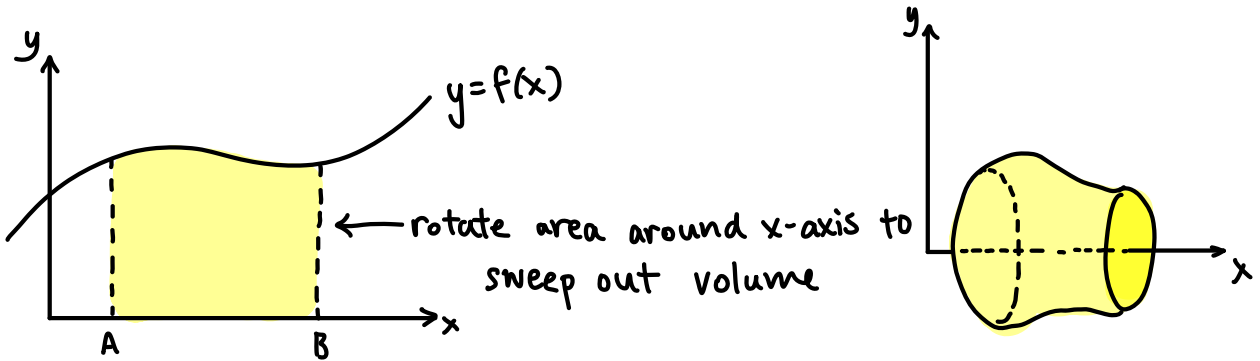 y
y=f(x)
rotate area around x-axis to
sweep out volume
x
A
B
y
x